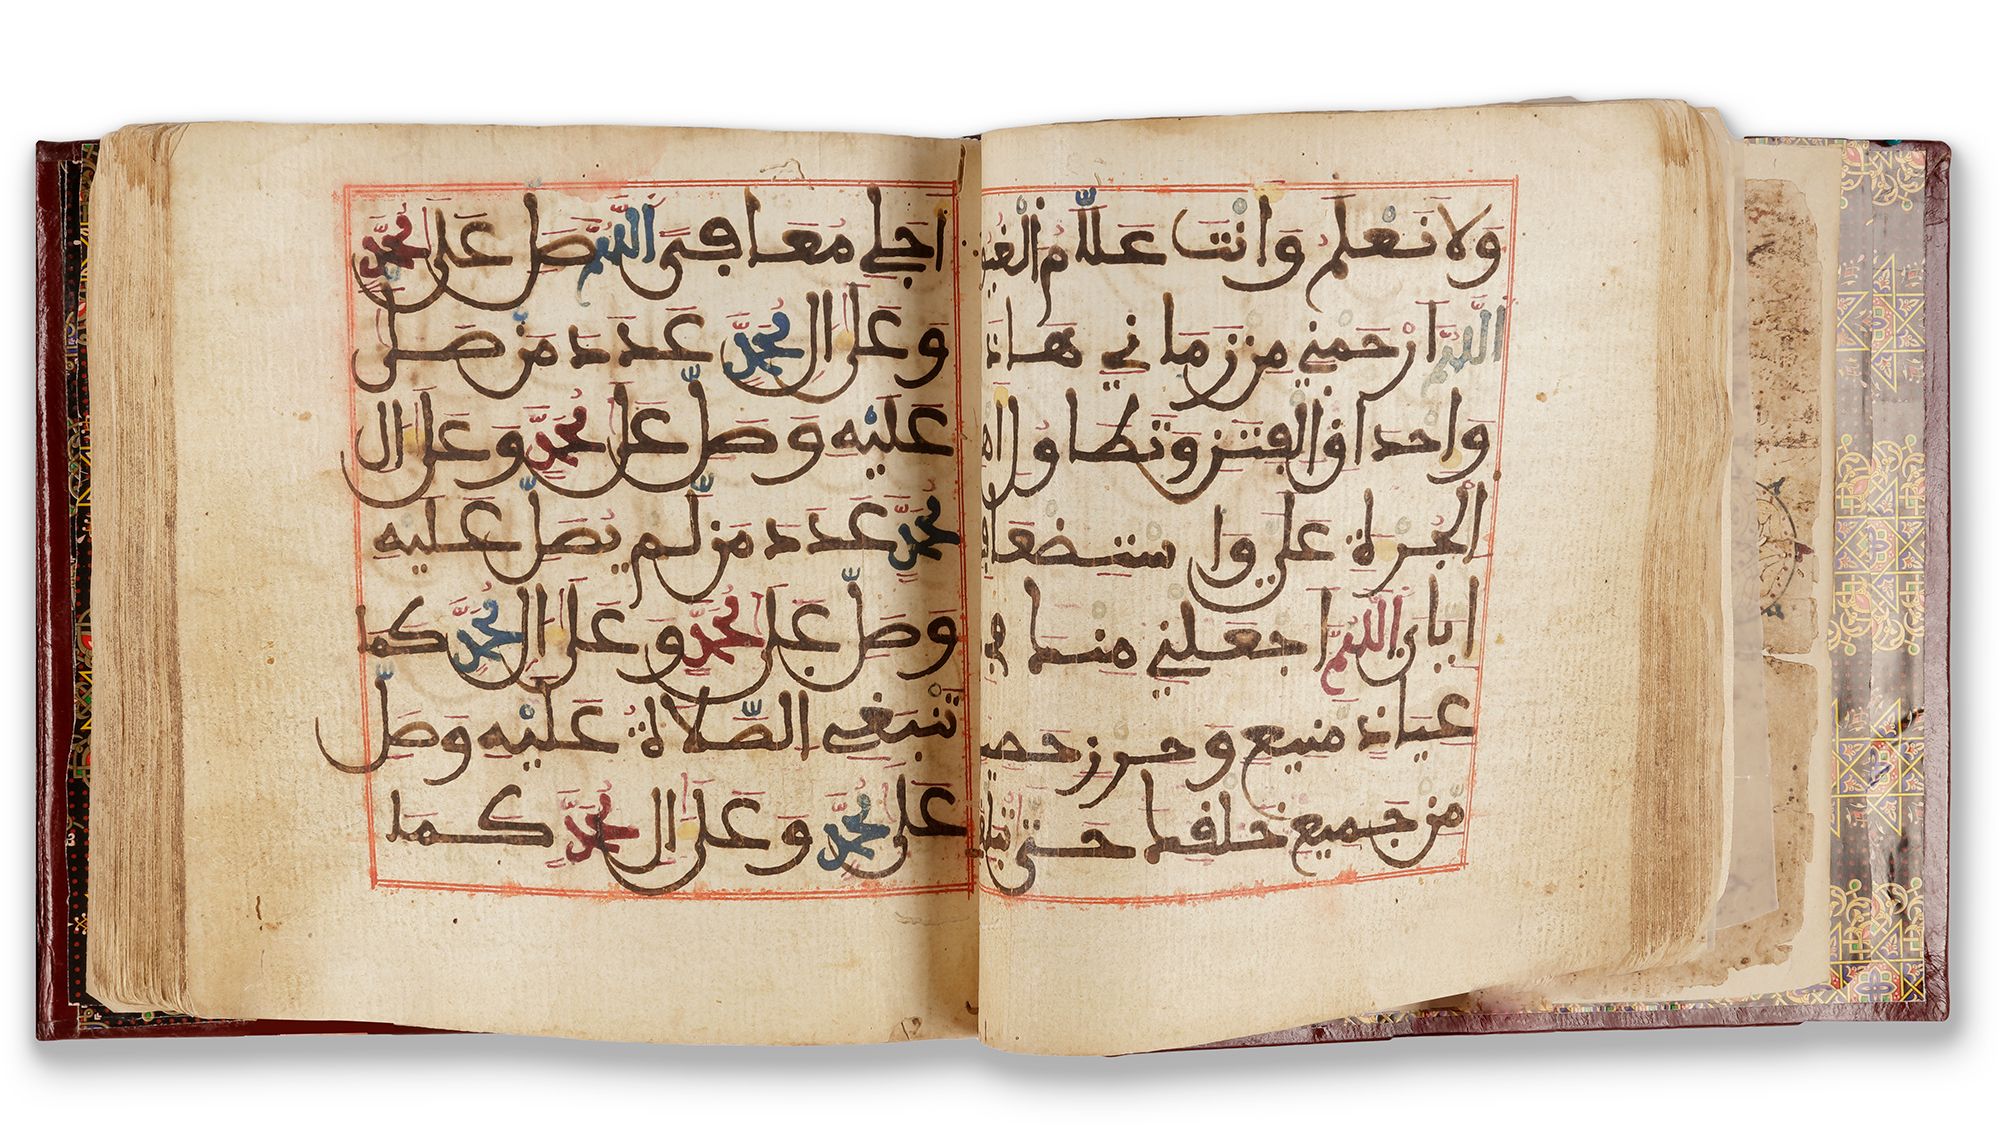 وَلَا نَعْلَمُ وَأَنْتَ عَلَّامُ الْغُيُو
اللَّهُمَّ ارْحَمْنِي مِن زَمَانِي هَاذَ
وَإحْدَاقِ الْفِتَنِ وَتَطَاوُلِ اهْ
الْجُرْأَةِ عَلَيَّ وَاسْتِضْعَافِ
إيَّايَ اللَّهُمَّ اجْعَلْنِي مِنْكَ فِي
عِيَاذٍ مَنِيعٍ وَحِرْزٍ حَصِي
مِّن جَمِيعِ خَلْقِكَ حَتَّى تُبَلِّغَ
أَجَلِي مُعَافًى اللَّهُمَّ صَلِّ عَلَى مُحَمَّدٍ
وَعَلَى ءَالِ مُحَمَّدٍ عَدَدَ مَنْ صَلَّى
عَلَيْهِ وَصَلِّ عَلَى مُحَمَّدٍ وَعَلَى ءَالِ
مُحَمَّدٍ عَدَدَ مَن لَّمْ يُصَلِّ عَلَيْهِ
وَصَلِّ عَلَى مُحَمَّدٍ وَعَلَى ءَالِ مُحَمَّدٍ كَمَا
تَنْبَغِي الصَّلَاةُ عَلَيْهِ وَصَلِّ
عَلَى مُحَمَّدٍ وَعَلَى ءَالِ مُحَمَّدٍ كَمَا